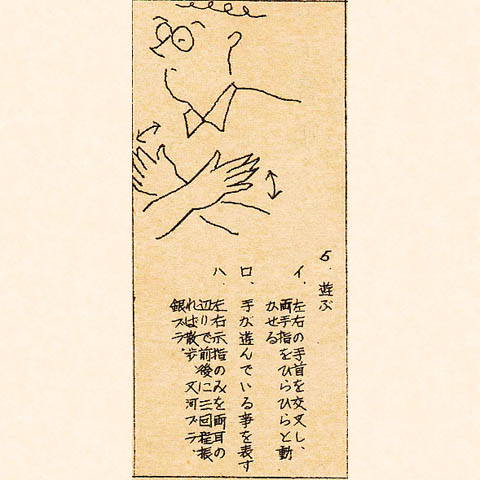 5. 遊ぶ
イ. 左右の手首を交叉し、
両手指をひらひらと動
かせる
ロ. 手が遊んでいる事を表す
ハ. 左右示指のみを両耳の
辺りで前後に三回程振
れば散歩、又河ブラ、
銀ブラ、